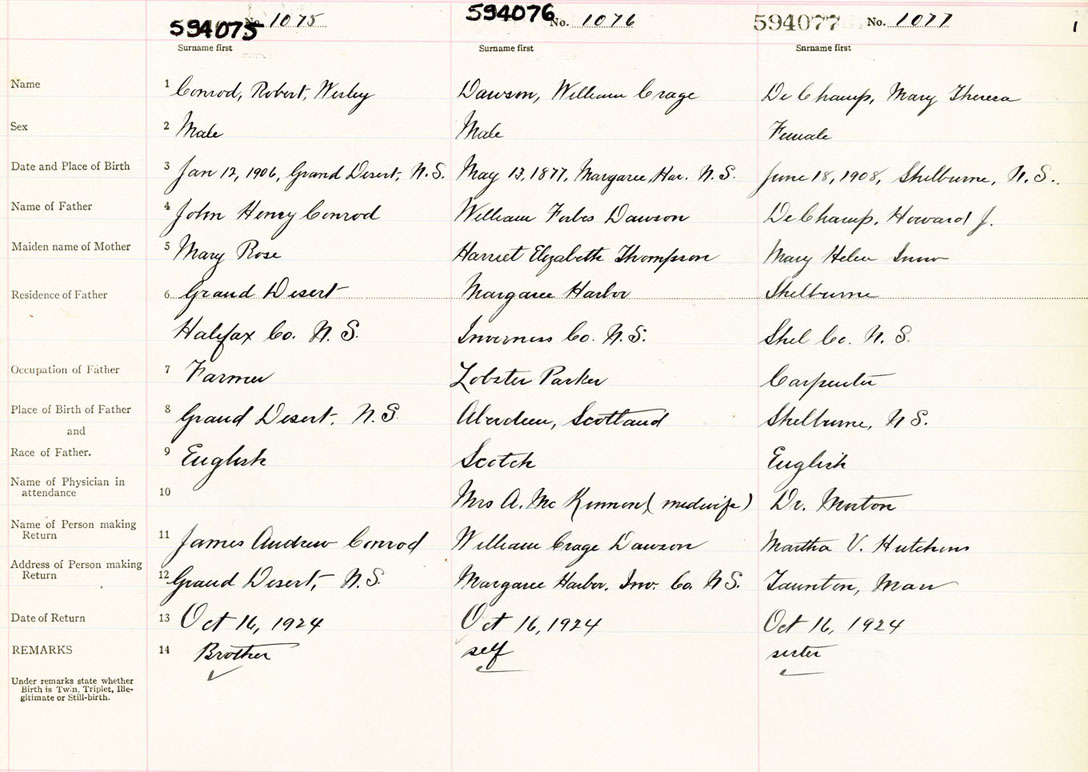 594075 No. 1075 594076 No. 1076 594077 No. 1077 1
Surname first Surname first Surname first
Name 1 Conrod, Robert, Wesley Dawson, William Crage DeChamp, Mary Theresa
Sex 2 Male Male Female
Date and Place of Birth 3 Jan 12, 1906, Grand Desert, N.S. May 13, 1877, Margaree Har. N.S. June 18, 1908, Shelburne, N.S.
Name of Father 4 John Henry Conrod William Forbes Dawson DeChamp, Howard J.
Maiden name of Mother 5 Mary Rose Harriet Elizabeth Thompson Mary Helen Snow
Residence of Father 6 Grand Desert Margaree Harbor Shelburne
Halifax Co. N.S. Inverness Co. N.S. Shel Co. N.S.
Occupation of Father 7 Farmer Lobster Parker Carpenter
Place of Birth of Father 8 Grand Desert, N.S. Aberdeen, Scotland Shelburne, N.S.
and
Race of Father. 9 English Scotch English
Name of Physician in
attendance 10 Mrs A. McKinnon (medwife) Dr. Morton
Name of Person making
Return 11 James Andrew Conrod William Crage Dawson Martha V. Hutchins
Address of Person making
Return 12 Grand Desert, N.S. Margaree Harbor, Inv. Co. N.S. Taunton, Mass
Date of Return 13 Oct 16, 1924 Oct 16, 1924 Oct 16, 1924
REMARKS 14 Brother self sister
Under remarks state whether
Birth is Twin, Triplet, Ille-
gitimate or Still-birth.